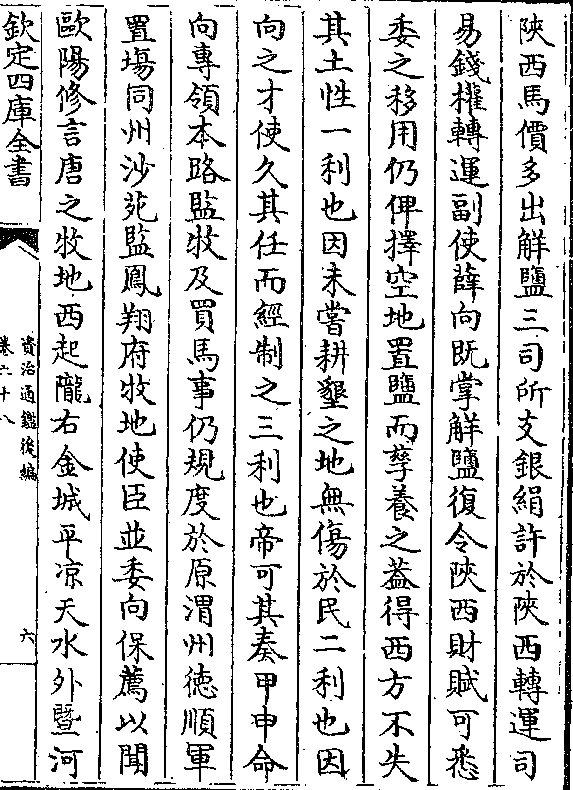 陜西馬價多出解鹽三司所支銀絹許於陜西轉運司
易錢權轉運副使薛向既掌解鹽復令陜西財賦可悉
委之移用仍俾擇空地置鹽而孳養之葢得西方不失
其土性一利也因未嘗耕墾之地無傷於民二利也因
向之才使久其任而經制之三利也帝可其奏甲申命
向專領本路監牧及買馬事仍規度於原渭州徳順軍
置塲同州沙苑監鳳翔府牧地使臣並委向保薦以聞
歐陽修言唐之牧地西起隴右金城平凉天水外暨河
欽定四庫全書
資治通鑑後編
卷六十八
六